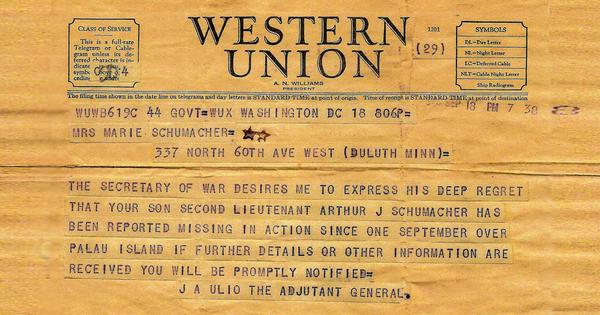 CLASS OF SERVICE
This is a full-rate
Telegram or Cable-
gram unless its de-
ferred character is in-
WESTERN
UNION
A. N. WILLIAMS
PRESIDENT
1201
(29)
SYMBOLS
DL=Day Letter
NL=Night Letter
LC=Deferred Cable
NLT=Cable Night Letter
Ship Radiogram
The filing time shown in the date line on telegrams and day letters is STANDARD TIME at point of origin. Time of receipt is STANDARD TIME at point of destination
WUWB619C 44 GOVT=WUX WASHINGTON DC 18 806P=
SEP 18 PM 7 38
MRS MARIE SCHUMACHER=
337 NORTH 60TH AVE WEST (DULUTH MINN)=
THE SECRETARY OF WAR DESIRES ME TO EXPRESS HIS DEEP REGRET
THAT YOUR SON SECOND LIEUTENANT ARTHUR J SCHUMACHER HAS
BEEN REPORTED MISSING IN ACTION SINCE ONE SEPTEMBER OVER
PALAU ISLAND IF FURTHER DETAILS OR OTHER INFORMATION ARE
RECEIVED YOU WILL BE PROMPTLY NOTIFIED=
J A ULIO THE ADJUTANT GENERAL.